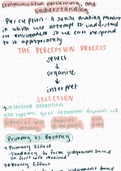 communication perceiving, and
understanding
Perception - A sense making process
in which we attempt to understand
our environment so we can respond
to it appropriately
THE PERCEPTION PROCESS
select
↓
organize
↓
interpret
SELECTION
selective attention
Primacy vs. Recency
Primacy Effect
- tendency to form judgement based
on first info received
Recency Effect